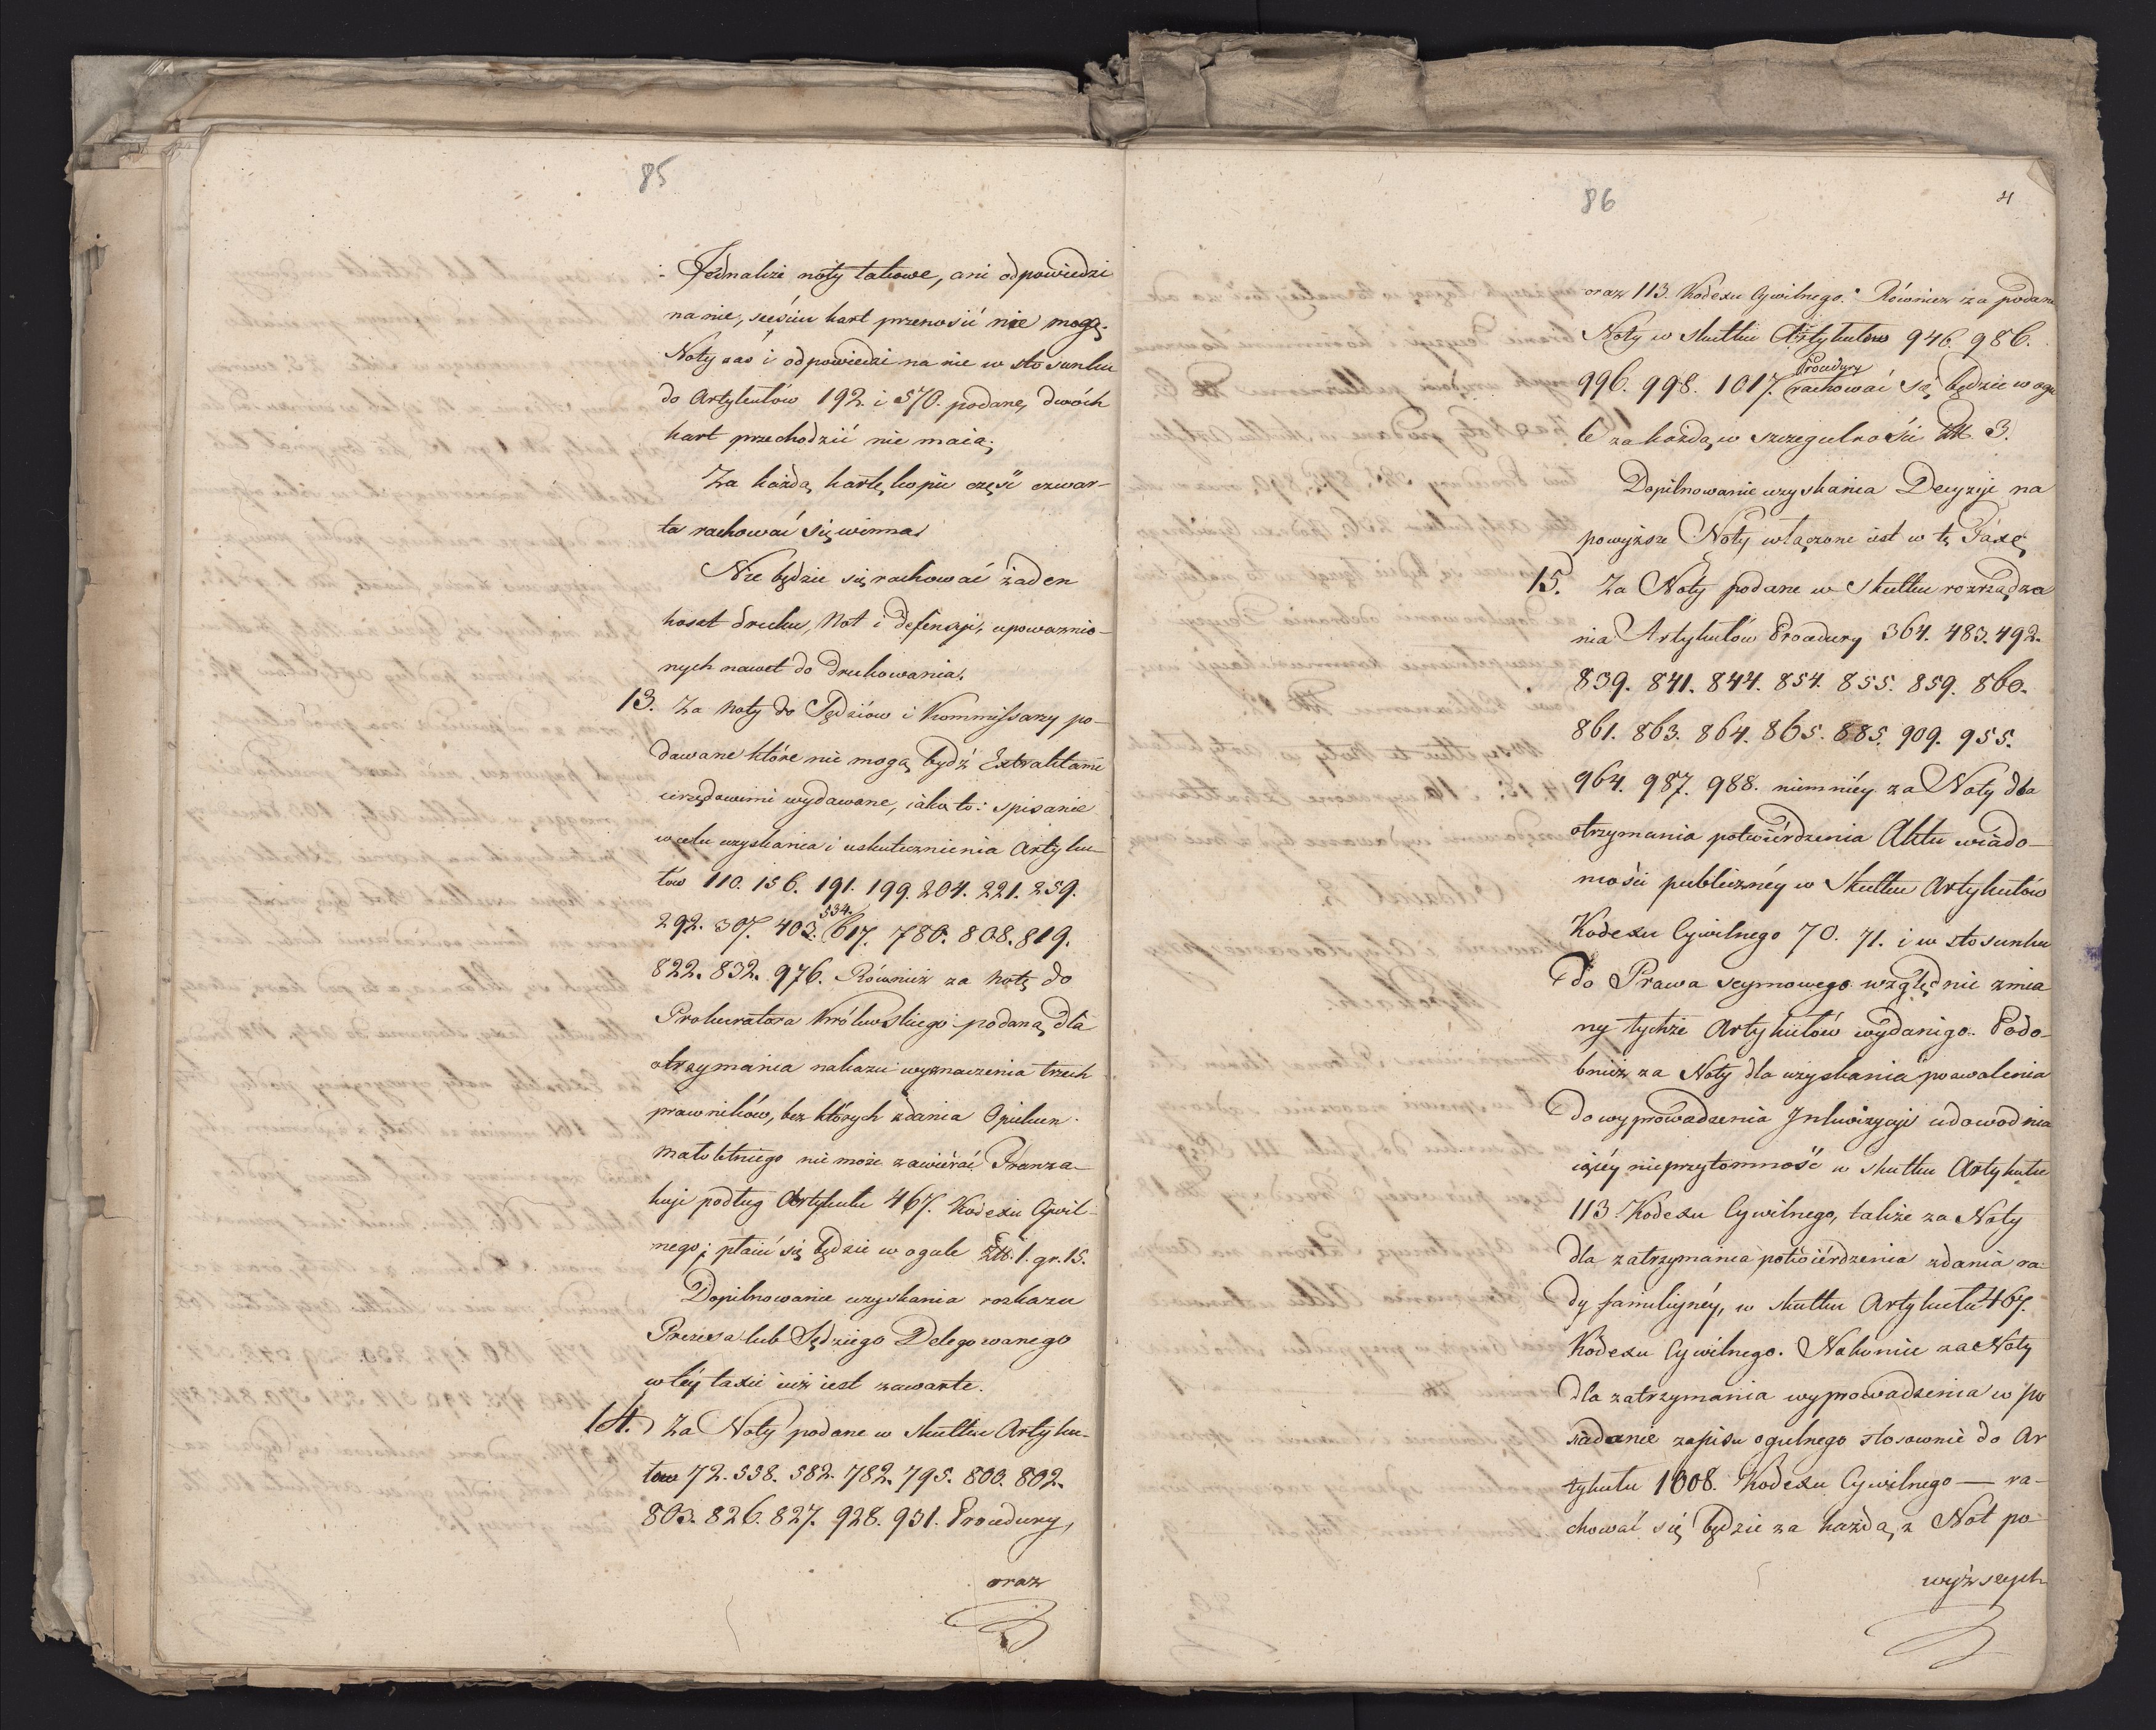 85
Jednakże noty takowe, ani odpowiedzi
na nie, sześciu kart przenosić nie mogą.
Noty zaś i odpowiedzi na nie w stosunku
do Artykułów 192. i 570. podane, dwóch
kart przechodzić nie maią.
Za każdą kartę kopii część czwar-
ta rachować się winna.
Nie będzie się rachować żaden
koszt druku, Not i defensyi, upoważnio-
nych nawet do drukowania.
13. Za noty do Sędziow i Kommissarzy po-
dawane które nie mogą bydź Extraktami
urzędowemi wydawane, iako to: spisanie
w celu uzyskania i uskutecznienia Artyku-
łów 110. 156. 191. 199. 204. 221. 259.
292. 307. 403. 534. 617. 780. 808. 819.
822. 832. 976. Również za notę do
Prokuratora Królewskiego podaną dla
otrzymania nakazu wyznaczenia trzech
prawników, bez których zdania Opiekun
małoletniego nie może zawiérać Tranza-
kcyi podług Artykułu 467. Kodexu Cywil-
nego; płacić się będzie w ogule Złł. 1. gr. 15.
Dopilnowanie uzyskania rozkazu
Prezesa lub Sędziego Delegowanego
w téy taxie iuż iest zawarte.
14. Za Noty podane w skutku Artyku-
łow 72. 558. 582. 782. 795. 800. 802.
803. 826. 827. 928. 931. Procedury,
oraz
86
4
oraz 113. Kodexu Cywilnego. Również za podane
Noty w skutku Artykułow 946. 986.
996. 998. 1017. Procedury rachować się będzie w ogu
le za każdą w szczegulności Złł. 3.
Dopilnowanie uzyskania Decyzyi na
powyższe Noty włączone iest w tę Taxę.
15. Za Noty podane w skutku rozrządze
nia Artykułów Procedury 364. 483. 492.
839. 841. 844. 854. 855. 859. 860.
861. 863. 864. 865. 885. 909. 955.
964. 987. 988. niemniéy za Noty dla
otrzymania potwiérdzenia Aktu wiado-
mości publicznéy w skutku Artykułów
Kodexu Cywilnego 70. 71. i w stosunku
do Prawa seymowego względnie zmia
ny tychże Artykułów wydanego. Podo-
bnież za Noty dla uzyskania pozwolenia
do wyprowadzenia Inkwizycyi udowodnia
iącéy nieprzytomność w skutku Artykułu
113. Kodexu Cywilnego, także za Noty
dla zatrzymania potwiérdzenia zdania ra-
dy familiynéy, w skutku Artykułu 467.
Kodexu Cywilnego. Nakoniec za Noty
dla zatrzymania wyprowadzenia w po
siadanie zapisu ogulnego stosownie do Ar
tykułu 1008. Kodexu Cywilnego — ra-
chować się będzie za każdą z Not po-
wyższych